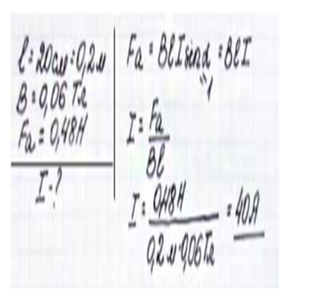 l = 20см = 0,2м
B = 0,06 Тл
Fа = 0,48Н
I - ?
Fа = BlI sinα = BlI
1
I = Fа / Bl
I = 0,48Н / 0,2м·0,06Тл = 40А